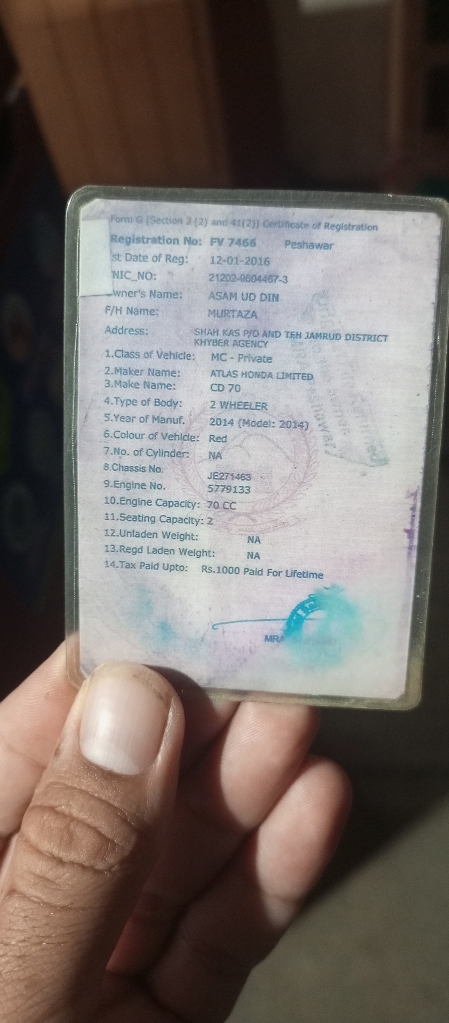 Form G (Section 2 (2) and 41(2)) Certificate of Registration
Registration No: FV 7466 Peshawar
st Date of Reg: 12-01-2016
NIC_NO: 21202-9604467-3
wner's Name: ASAM UD DIN
F/H Name: MURTAZA
Address: SHAH KAS P/O AND TEH JAMRUD DISTRICT
KHYBER AGENCY
1.Class of Vehicle: MC - Private
2.Maker Name: ATLAS HONDA LIMITED
3.Make Name: CD 70
4.Type of Body: 2 WHEELER
5.Year of Manuf. 2014 (Model: 2014)
6.Colour of Vehicle: Red
7.No. of Cylinder: NA
8.Chassis No. JE271463
9.Engine No. 5779133
10.Engine Capacity: 70 CC
11.Seating Capacity: 2
12.Unladen Weight: NA
13.Regd Laden Weight: NA
14.Tax Paid Upto: Rs.1000 Paid For Lifetime
MRA